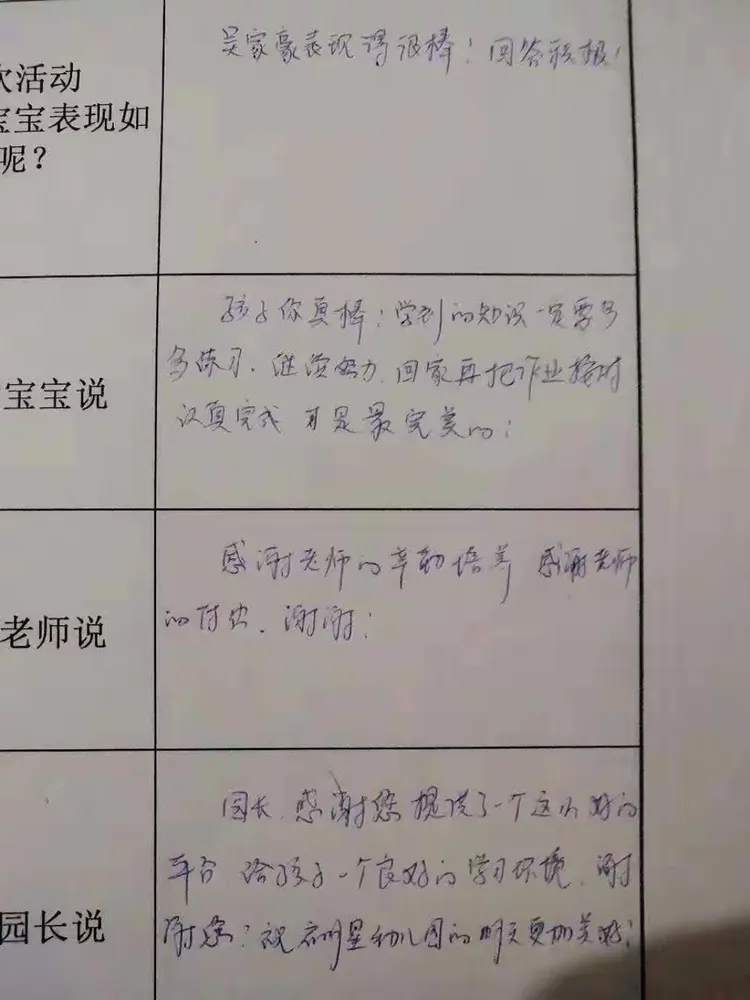 次活动
宝宝表现如
呢？
吴家豪表现得很棒！回答积极！
宝宝说
孩子你真棒！学到的知识一定要多
多练习、继续努力，回家再把作业按时
认真完成 才是最完美的！
老师说
感谢老师的辛勤培养 感谢老师
的付出、谢谢！
园长说
园长、感谢您提供了一个这么好的
平台 给孩子一个良好的学习环境、谢
谢您！祝 明星幼儿园的明天更加美好！